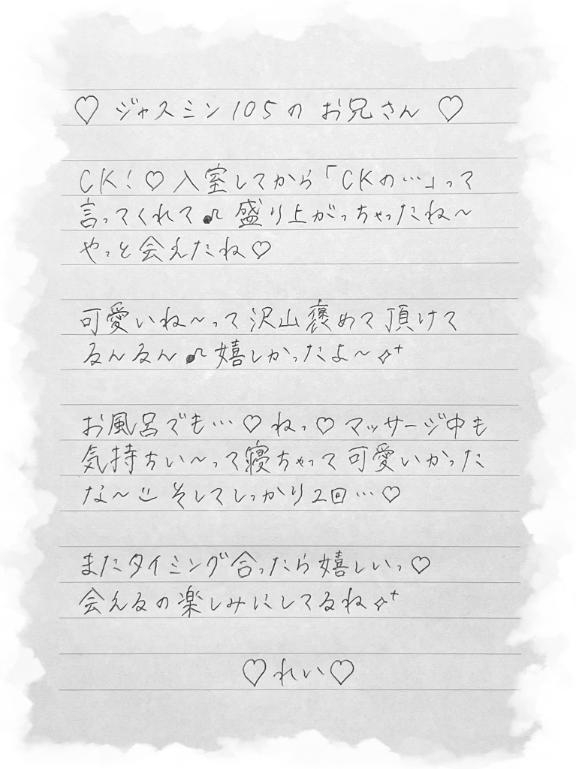 ♡ ジャスミン105の お兄さん ♡
CK!♡入室してから「CKの…」って
言ってくれて♫盛り上がっちゃったね〜
やっと会えたね♡
可愛いね〜って沢山褒めて頂けて
るんるん♫嬉しかったよ〜✧⁺
お風呂でも…♡ねっ♡マッサージ中も
気持ちい〜って寝ちゃって可愛いかった
な〜☺そしてしっかり2回…♡
またタイミング合ったら嬉しいっ♡
会えるの楽しみにしてるね✧⁺
♡れい♡